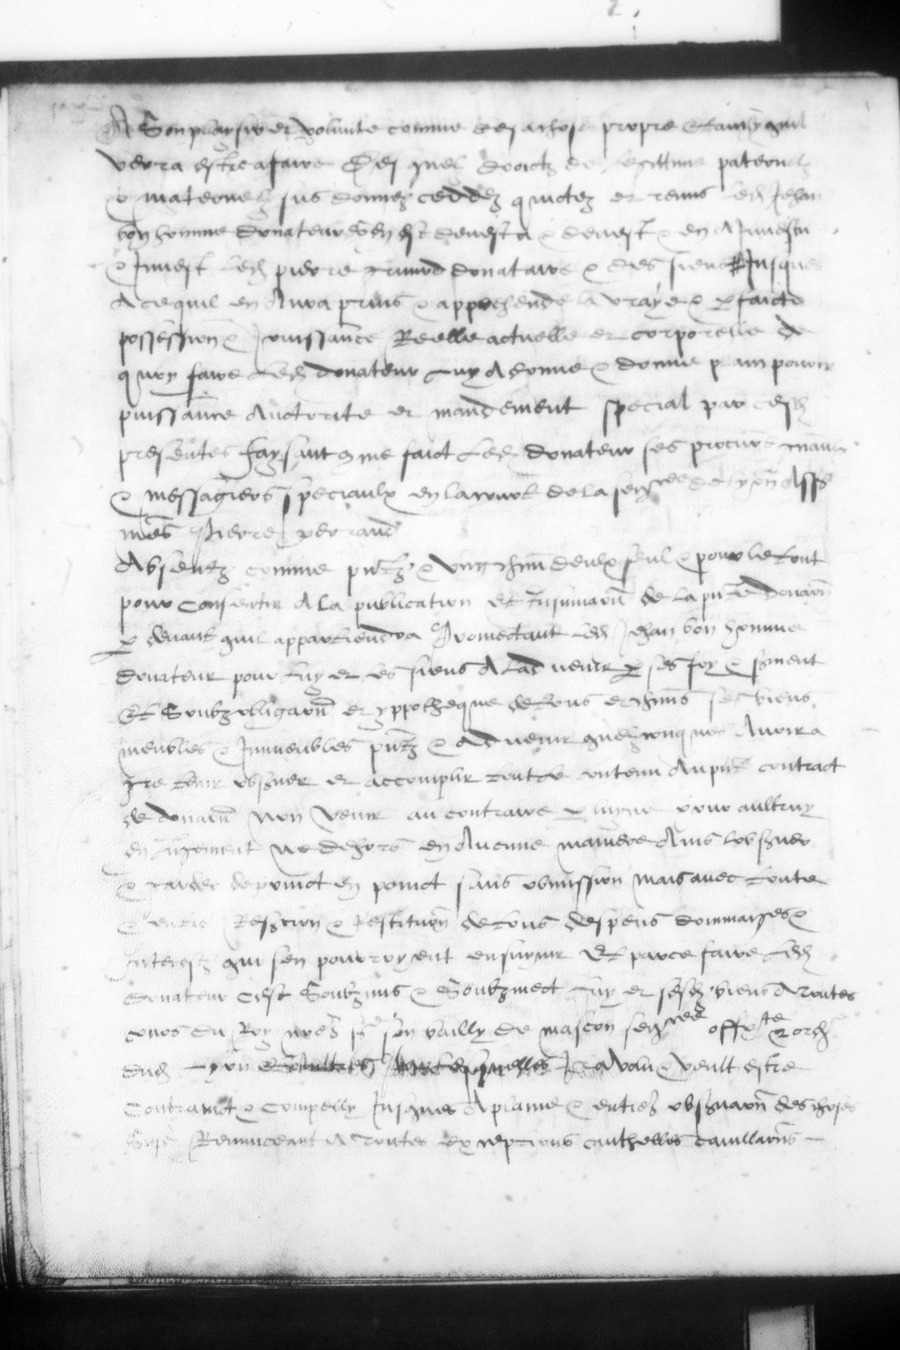 A son playsir et volunte comme de sa chose propre et ainsy quil
verra estre a faire Des quelz droictz de legittime paternelz
& maternelz sus donnez ceddez quictez et remis led Jehan
bon homme donateur sen est devestu & devest & en A Jnvestu
& Jnvest led pierre donataire & des siens Jusques
A ce quil en Aura prins & apprehende la vraye & parfaicte
possession & Jouissance Reelle actuelle et corporelle de
quoy faire led donateur luy A donne & donne plain pouvoir
puissance Auctorite et mandement special par cesd
presentes faysant comme faict led donateur ses procureurs
& messagiers speciaulx en la court de la sen de lyon
mes pierre
Absentz comme pntz & ung chun deulx seul & pour le tout
pour consentir A la publication et Jnsinuaon de la pnte donaon
par devant quil appartiendra Promectant led Jehan bon homme
donateur pour luy et les siens A lad venir par ses foy & serment
et soubz obligaon et yppotheque de tous et chuns ses biens
meubles & Jmmeubles pntz & advenir quelzconques Avoir a
gre tenir observer et accomplir tout le contenu au pnt contract
de donaon non venir au contraire par luy ne par aultruy
en Jugement ne dehors en Aucune maniere Ains lobserver
& garder de poinct en poinct sans obmission mais avec toute
& Restitution de tous despens dommaiges &
Jnterestz qui sen pourroyent ensuyvir Et pour ce faire led
donateur cest soubzmis & soubzmect luy et sesd biens A toutes
cours du Roy nre sr son bailly de mascon & ordre
dud lyon Jl a volu & veult estre
Contrainct & compelly Jusques A plaine & entiere observaon des choses
susd Renunceant A toutes exceptions cauthelles cavillaons